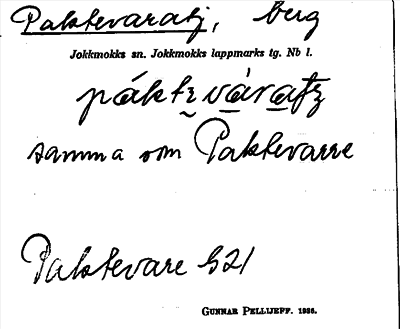 Paktevaratj, berg
Jokkmokks sn. Jokkmokks lappmarks tg. Nb l.
páktɛ̮vá̱ra̱tʒ
samma som Paktevarre
Paktevare 521
GUNNAR PELLIJEFF. 1956.